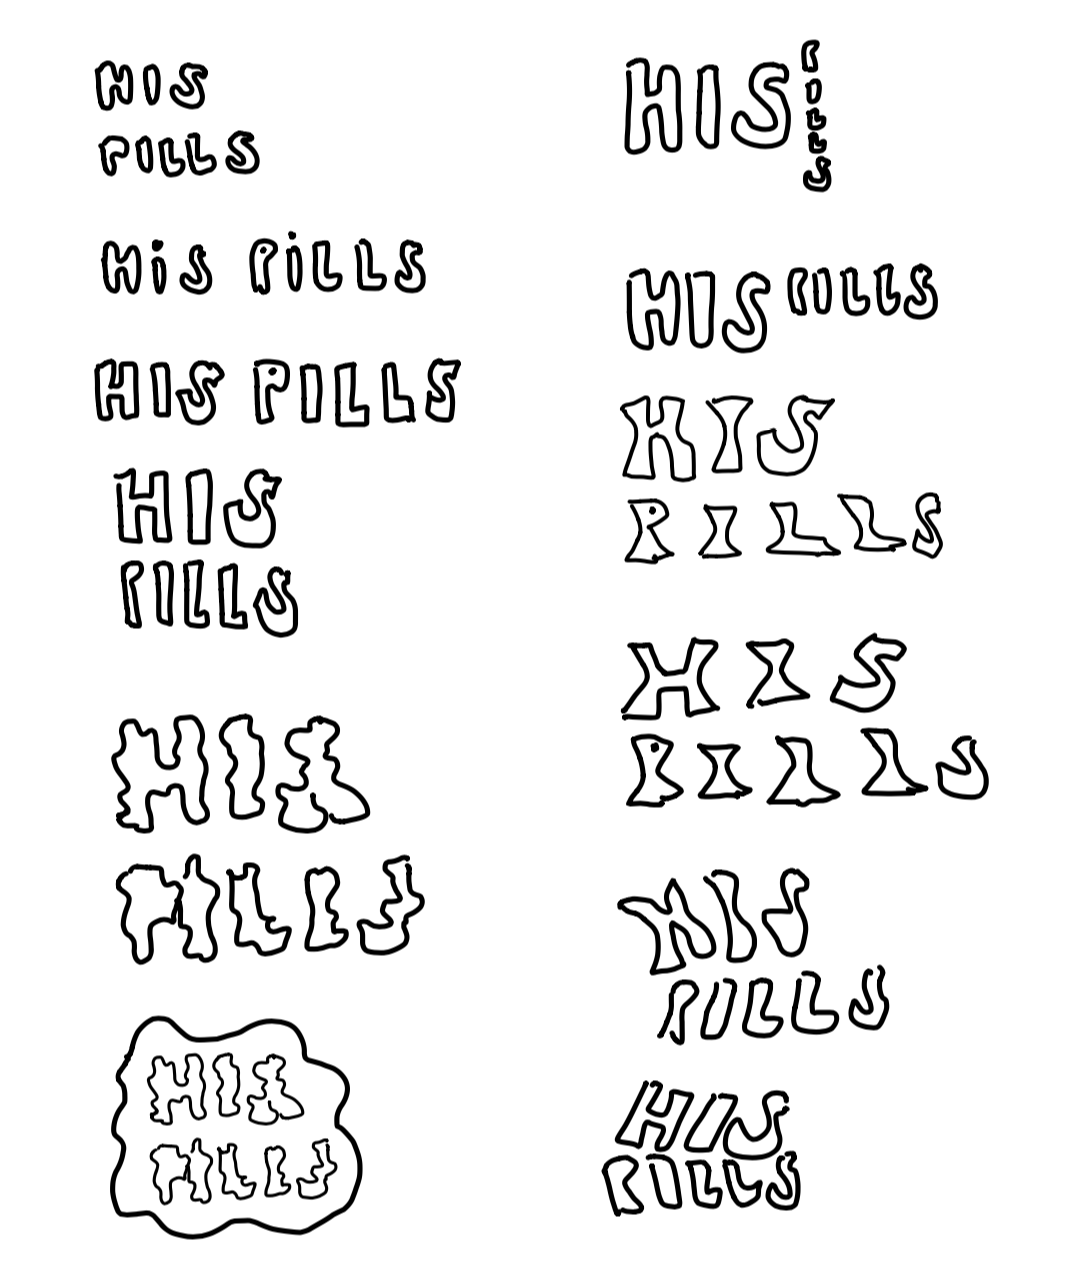 HIS
PILLS
HiS PiLLS
HIS PILLS
HIS
PILLS
HIS
PILLS
HIS
PILLS
HIS PILLS
HIS PILLS
HIS
PILLS
HIS
PILLS
HIS
PILLS
HIS
PILLS